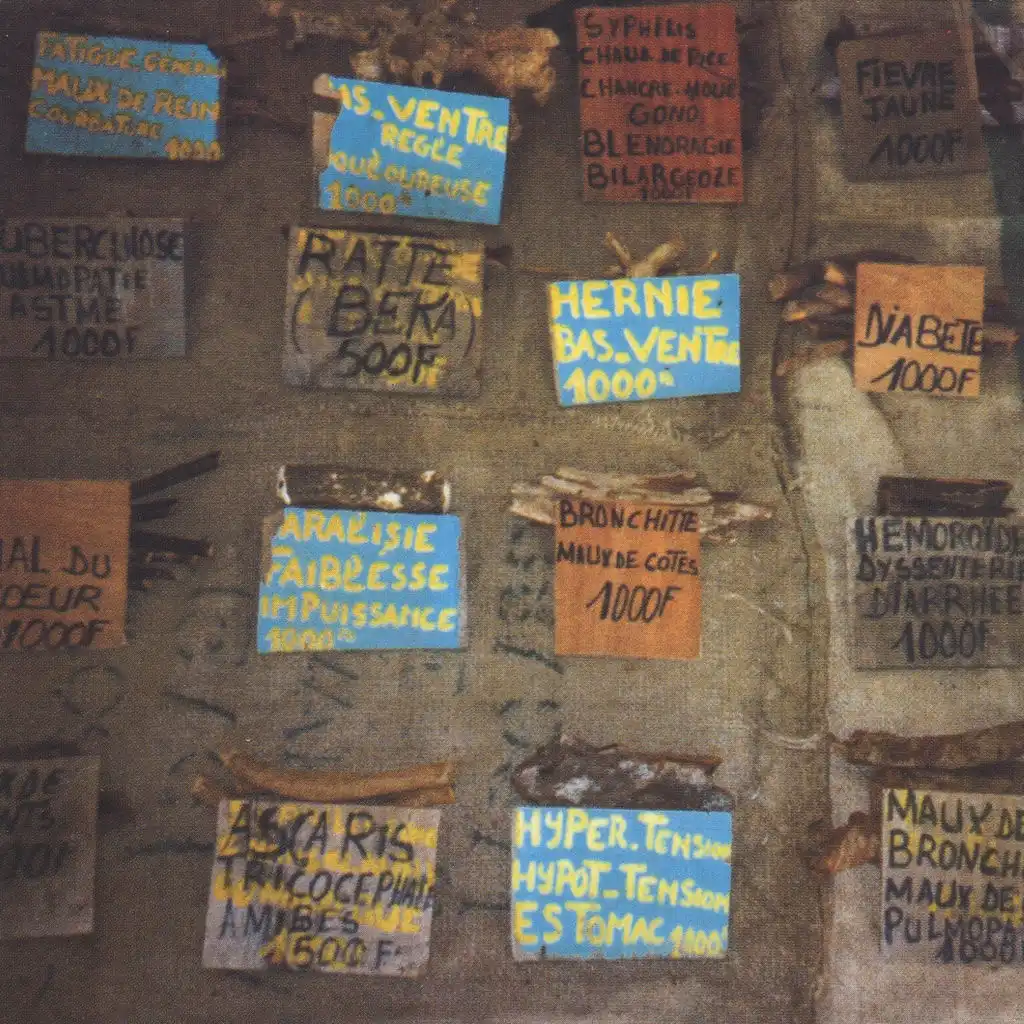 FATIGUE. GÉNÉRAL
MAUX DE REIN
COURBATURE
1000
AS_VENTRE
REGLE
OULOUREUSE
1000ᶠ
SYPHILIS
CHAUD. DE PICE
CHANCRE. MOUE
GONO
BLENORAGIE
BILARGEOZE
1000F
FIEVRE
JAUNE
1000F
UBERCULOSE
ULMOPATIE
ASTME
1000F
RATTE
(BEKA)
500F
HERNIE
BAS_VENTRE
1000ᶠ
DIABETE
1000F
AL DU
OEUR
1000F
ARALISIE
FAIBLESSE
IMPUISSANCE
1000
BRONCHITTE
MAUX DE COTES
1000F
HEMOROÏDE
DYSSENTERIE
DIARRHEE
1000F
X DE
NTS
00F
ASCARIS
TRICOCEPHALE
AMIBES
1500F
HYPER. TENSION
HYPOT_TENSION
ESTOMAC 1000
MAUX DE
BRONCH
MAUX DE
PULMOPA
1000F